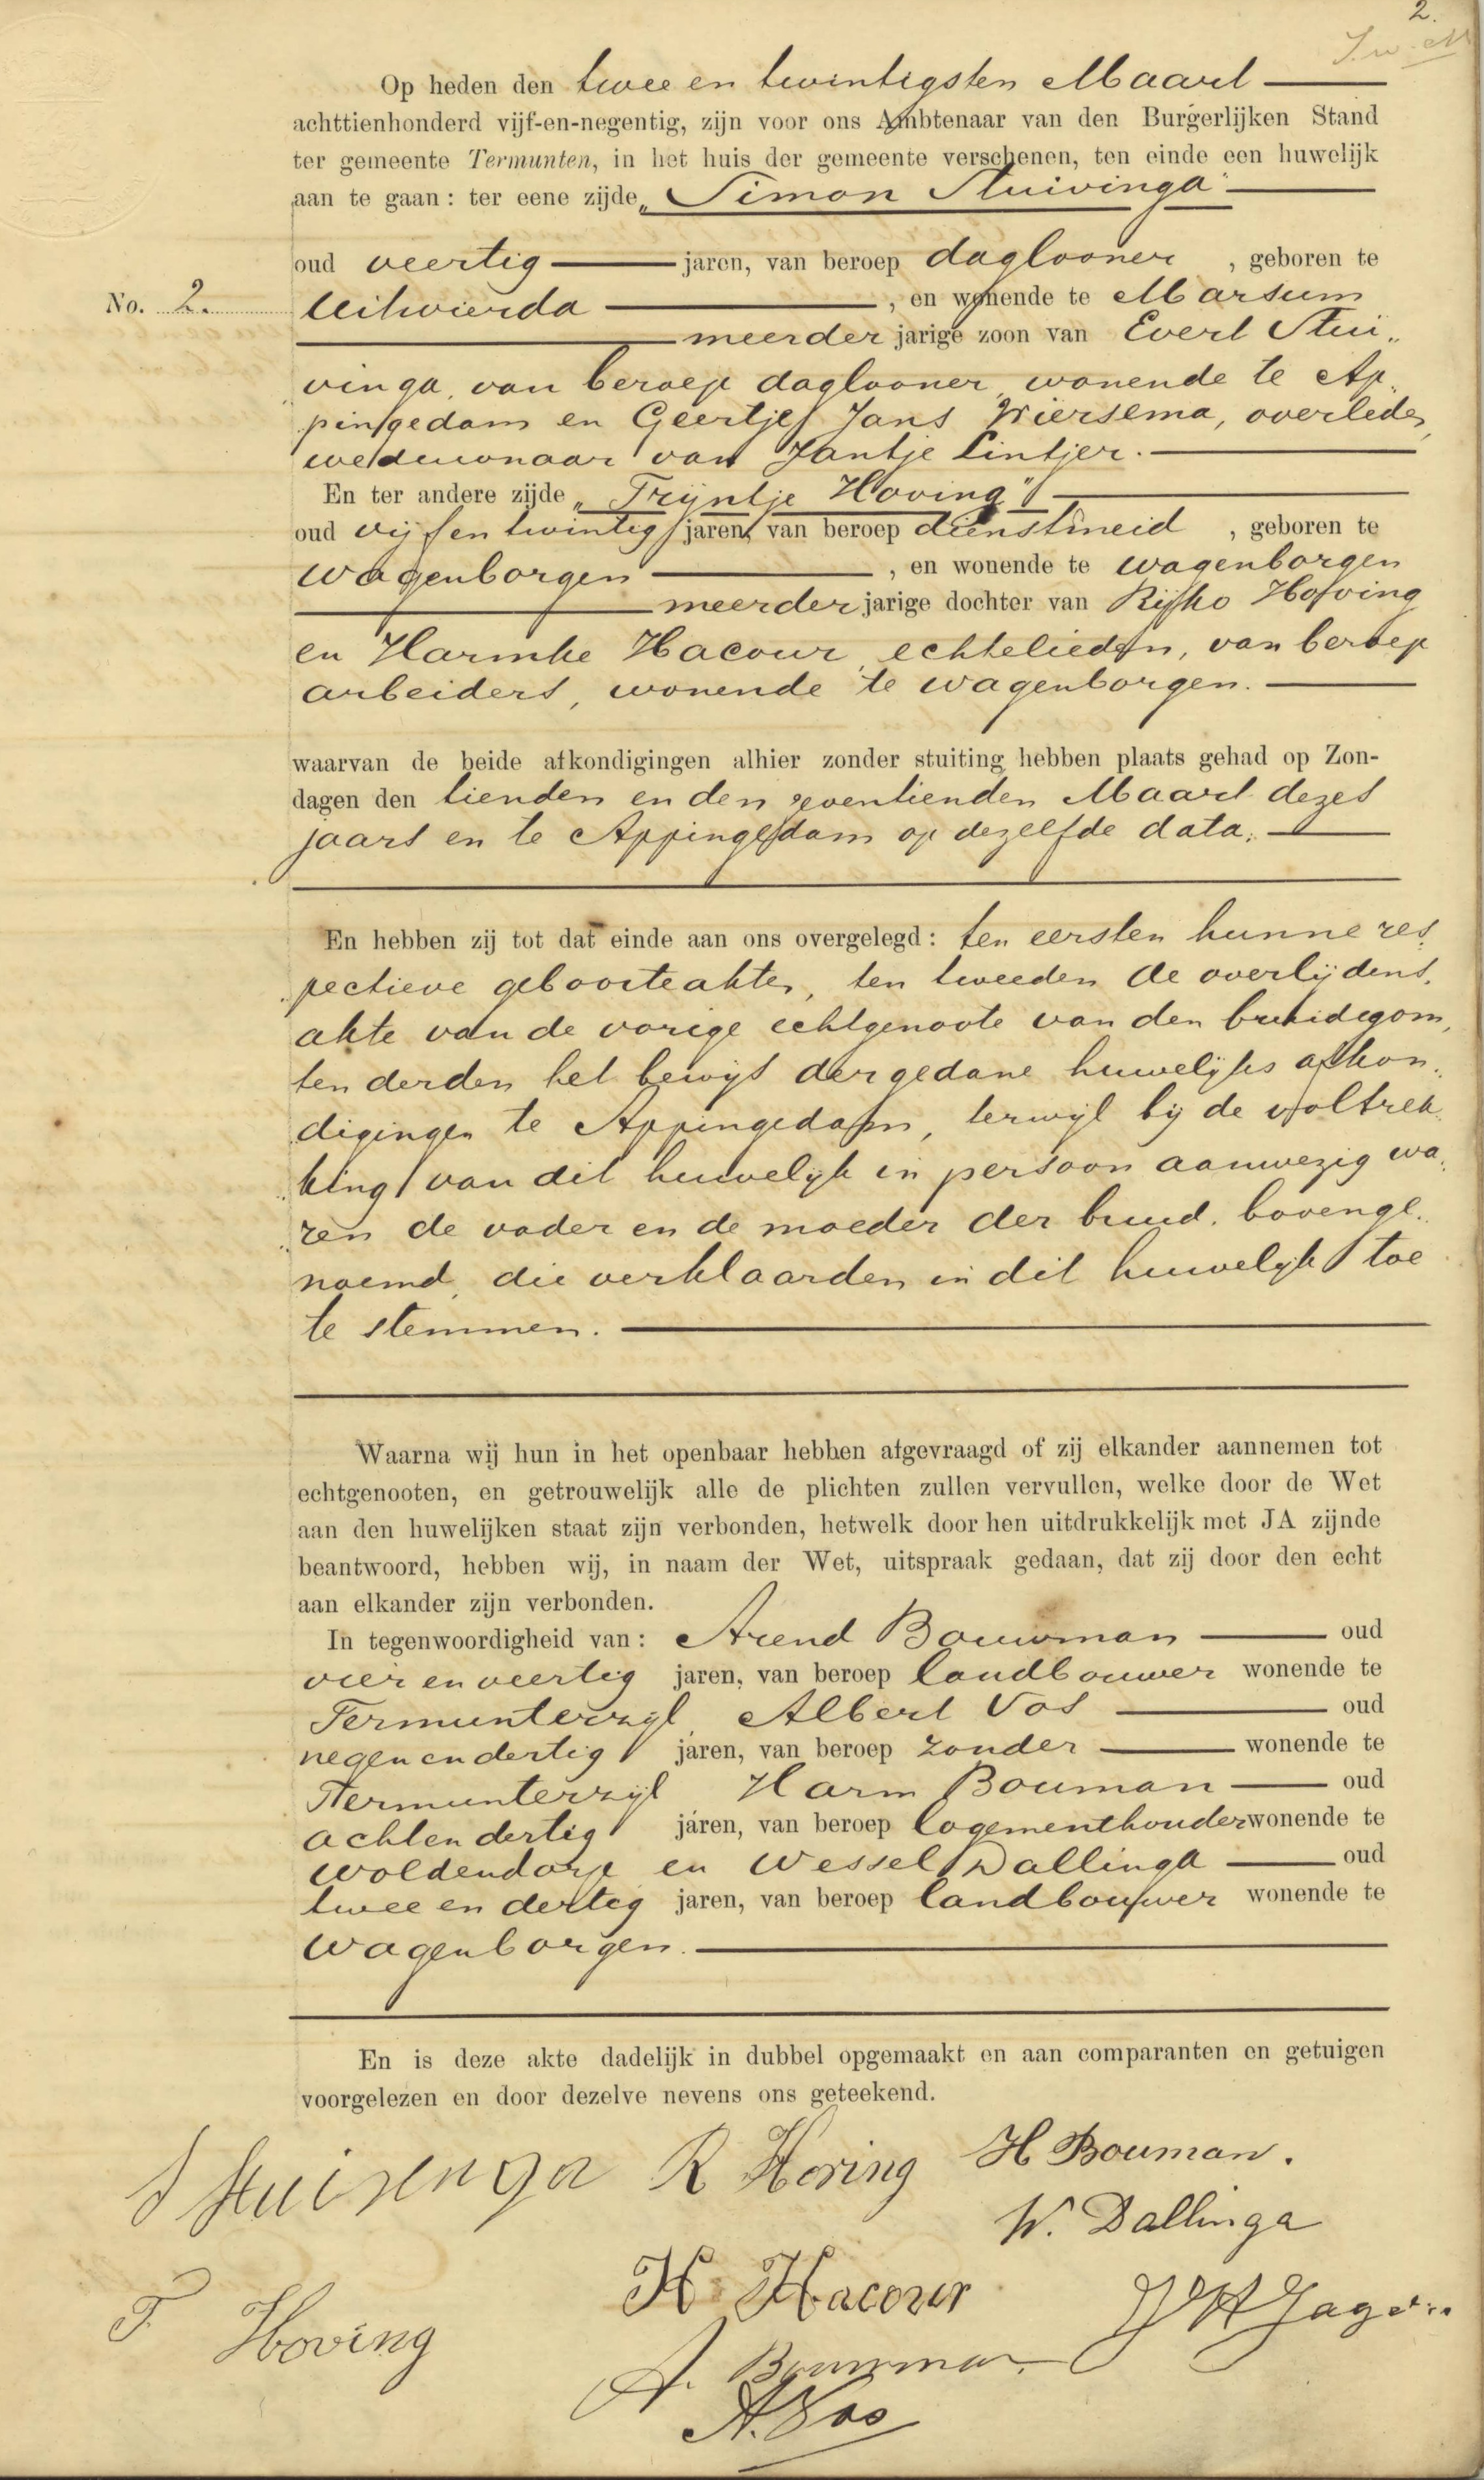 2.
Op heden den twee en twintigsten Maart
achttienhonderd vijf-en-negentig, zijn voor ons Ambtenaar van den Burgerlijken Stand
ter gemeente Termunten, in het huis der gemeente verschenen, ten einde een huwelijk
aan te gaan: ter eene zijde „Simon Stuivinga"
oud veertig jaren, van beroep daglooner, geboren te
No. 2. Uitwierda, en wonende te Marsum
meerderjarige zoon van Evert Stui„
vinga, van beroep daglooner, wonende te Ap„
pingedam en Geertje Jans Wiersema, overleden,
weduwnaar van Jantje Lintjer.
En ter andere zijde „Trijntje Hoving"
oud vijf en twintig jaren, van beroep dienstmeid, geboren te
Wagenborgen, en wonende te Wagenborgen
meerderjarige dochter van Rijko Hoving
en Harmke Hacour, echtelieden, van beroep
arbeiders, wonende te Wagenborgen.
waarvan de beide afkondigingen alhier zonder stuiting hebben plaats gehad op Zon-
dagen den tienden en den zeventienden Maart dezes
jaars en te Appingedam op dezelfde data.
En hebben zij tot dat einde aan ons overgelegd: ten eersten hunne res„
pectieve geboorteakten, ten tweeden de overlijdens„
akte van de vorige echtgenoote van den bruidegom,
ten derden het bewijs der gedane huwelijks afkon„
digingen te Appingedam, terwijl bij de voltrek„
king van dit huwelijk in persoon aanwezig wa„
ren de vader en de moeder der bruid, bovenge„
noemd, die verklaarden in dit huwelijk toe
te stemmen.
Waarna wij hun in het openbaar hebben afgevraagd of zij elkander aannemen tot
echtgenooten, en getrouwelijk alle de plichten zullen vervullen, welke door de Wet
aan den huwelijken staat zijn verbonden, hetwelk door hen uitdrukkelijk met JA zijnde
beantwoord, hebben wij, in naam der Wet, uitspraak gedaan, dat zij door den echt
aan elkander zijn verbonden.
In tegenwoordigheid van: Arend Bouwman oud
vier en veertig jaren, van beroep landbouwer wonende te
Termunterzijl, Albert Vos oud
negen en dertig jaren, van beroep zonder wonende te
Termunterzijl Harm Bouman oud
achten dertig jaren, van beroep logementhouder wonende te
Woldendorp en Wessel Dallinga oud
twee en dertig jaren, van beroep landbouwer wonende te
Wagenborgen.
En is deze akte dadelijk in dubbel opgemaakt en aan comparanten en getuigen
voorgelezen en door dezelve nevens ons geteekend.
S Stuivenga R Hoving H Bouman.
W. Dallinga
H Hacour
T Hoving
A. Bouwman
A. Vos